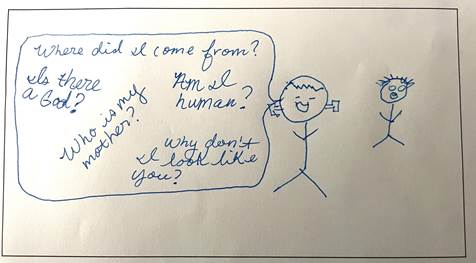 Where did I come from?
Is there
a God?
Am I
human?
Who is my
mother?
Why don't
I look like
you?